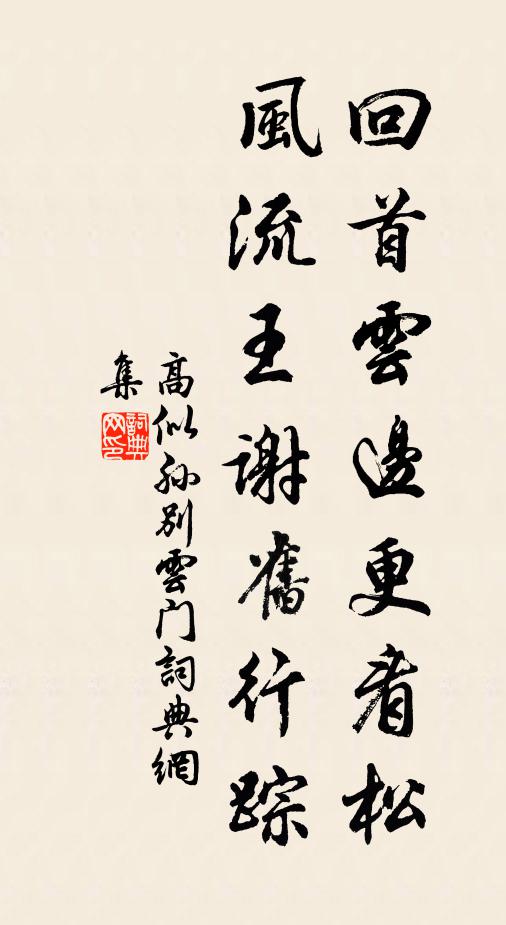 回首雲邊更看松
風流王謝舊行踪
高似孙别雲门詞典網
集
詞典
网印